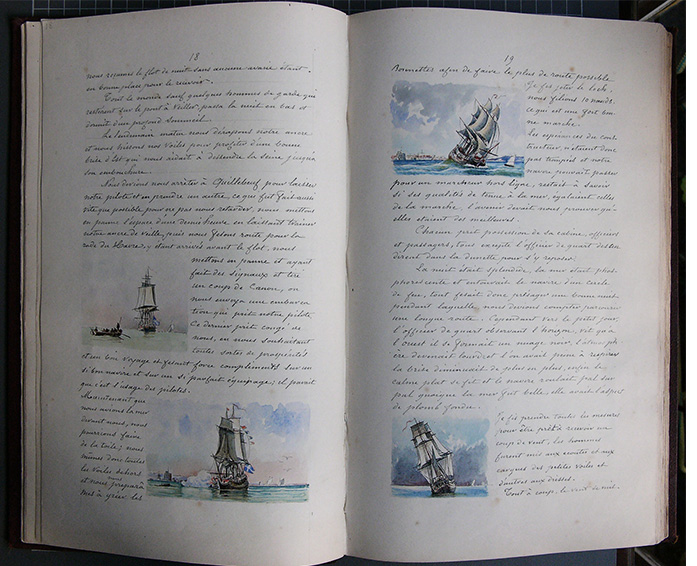 18
nous reçumes le flot de nuit sans aucune avarie étant
en bonne place pour le recevoir.
Tout le monde sauf quelques hommes de garde qui
restèrent sur le pont à veiller, passa la nuit en bas et
dormit d'un profond sommeil.
Le lendemain matin nous dérapons notre ancre
et nous hissons nos voiles pour profiter d'une bonne
brise d'Est qui nous aidait à descendre la Seine jusqu'à
son embouchure.
Nous devions nous arrêter à Quillebeuf pour laisser
notre pilote et en prendre un autre, ce qui fut fait aussi
vite que possible pour ne pas nous retarder, nous mettons
en panne l'espace d'une demie heure, en laissant tomber
notre ancre de veille, puis nous fesons route pour la
rade du Havre, y étant arrivés avant le flot, nous
mettons en panne et ayant
fait des signaux et tiré
un coup de Canon, on
nous envoya une embarca-
tion qui prit notre pilote.
Ce dernier prit congé de
nous, en nous souhaitant
toutes sortes de prospérités
et un bon voyage et fesant force compliments sur un
si bon navire et sur un si parfait équipage; il parait
que c'est l'usage des pilotes.
Maintenant que
nous avons la mer
devant nous, nous
pourrions faire
de la toile; nous
mimes donc toutes
les voiles dehors
et nous nous prépara-
mes à gréer les
19
Bonnettes afin de faire le plus de route possible
Je fis jeter le loch,
nous filions 10 nœuds.
ce qui est une fort bon-
ne marche.
les espérances du cons-
tructeur, n'étaient donc
pas trompées et notre
navire pouvait passer
pour un marcheur hors ligne, restait à savoir
si ses qualités de tenue à la mer, égalaient celles
de la marche. l'avenir devait nous prouver qu'
elles étaient des meilleures.
Chacun prit possession de sa cabine, officiers
et passagers, tous excepté l'officier de quart descen-
dirent dans la dunette pour s'y reposer.
La nuit était splendide, la mer était phos-
phorescente et entourait le navire d'un cercle
de feu, tout fesait donc présager une bonne nuit
pendant laquelle, nous devions compter parcourir
une longue route. Cependant vers le petit jour,
l'officier de quart observant l'horizon, vit qu'à
l'ouest il se formait un nuage noir, l'atmos-
phère devenait lourde, et l'on avait peine à respirer
la brise diminuait de plus en plus, enfin le
calme plat se fit et le navire roulait pal sur
pal quoique la mer fut belle, elle avait l'aspect
de plomb fondu.
Je fis prendre toutes les mesures
pour être prêt à recevoir un
coup de vent. les hommes
furent mis aux écoutes et aux
cargues des petites voiles et
d'autres aux drisses.
Tout à coup, le vent se mit